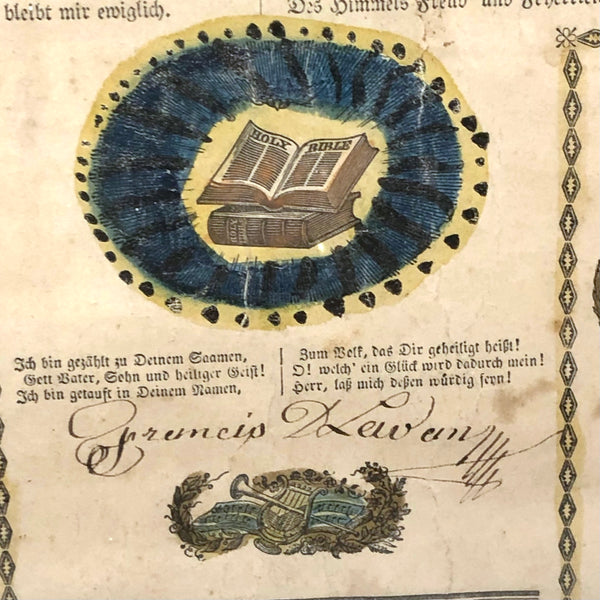 bleibt mir ewiglich.
Des Himmels Freud' und
HOLY BIBLE
HOLY
Ich bin gezählt zu Deinem Saamen,
Gott Vater, Sohn und heiliger Geist!
Ich bin getauft in Deinem Namen,
Zum Volk, das Dir geheiligt heißt!
O! welch' ein Glück wird dadurch mein!
Herr, laß mich deßen würdig seyn!
Francis D Levan